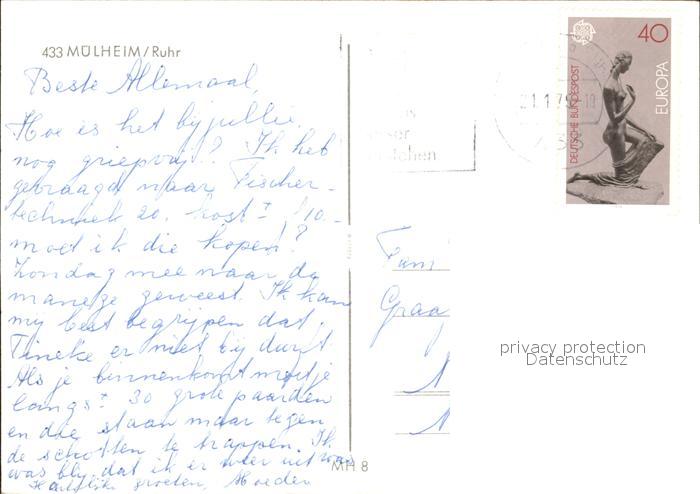 433 MÜLHEIM/Ruhr
Beste Allemaal,
Hoe is het bij jullie,
nog griepvrij? Ik heb
gevraagd naar Fischer-
techniek 20. kost ± f10.-
moet ik die kopen?
Zondag mee naar de
manege geweest. Ik kan
mij best begrijpen dat
Tineke er niet bij durft
Als je binnenkomt moet je
langs ± 30 grote paarden
en die staan maar tegen
de schotten te trappen. Ik
was blij dat ik er weer uit was
Hartelijke groeten, Moeder
MH 8
40
EUROPA
DEUTSCHE BUNDESPOST
Fam
Graa
privacy protection
Datenschutz